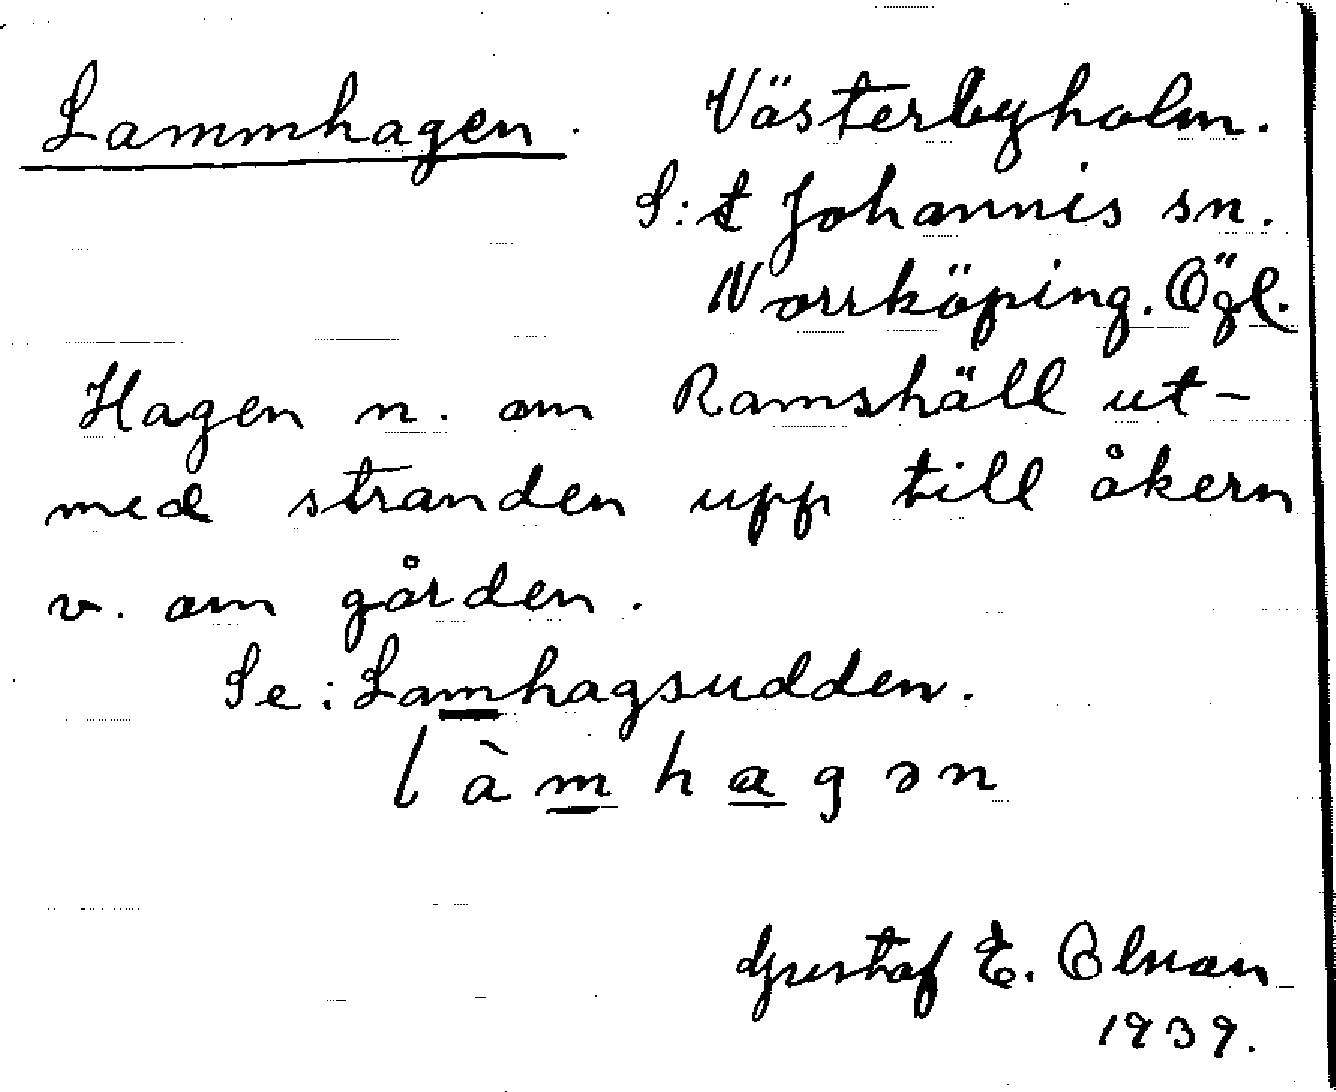 Lammhagen. Västerbyholm.
S:t Johannis sn.
Norrköping. Ögl.
Hagen n. om Ramshäll ut-
med stranden upp till åkern
v. om gården.
Se: Lamhagsudden.
l à m h a g ə n
Gustaf E.
1939.